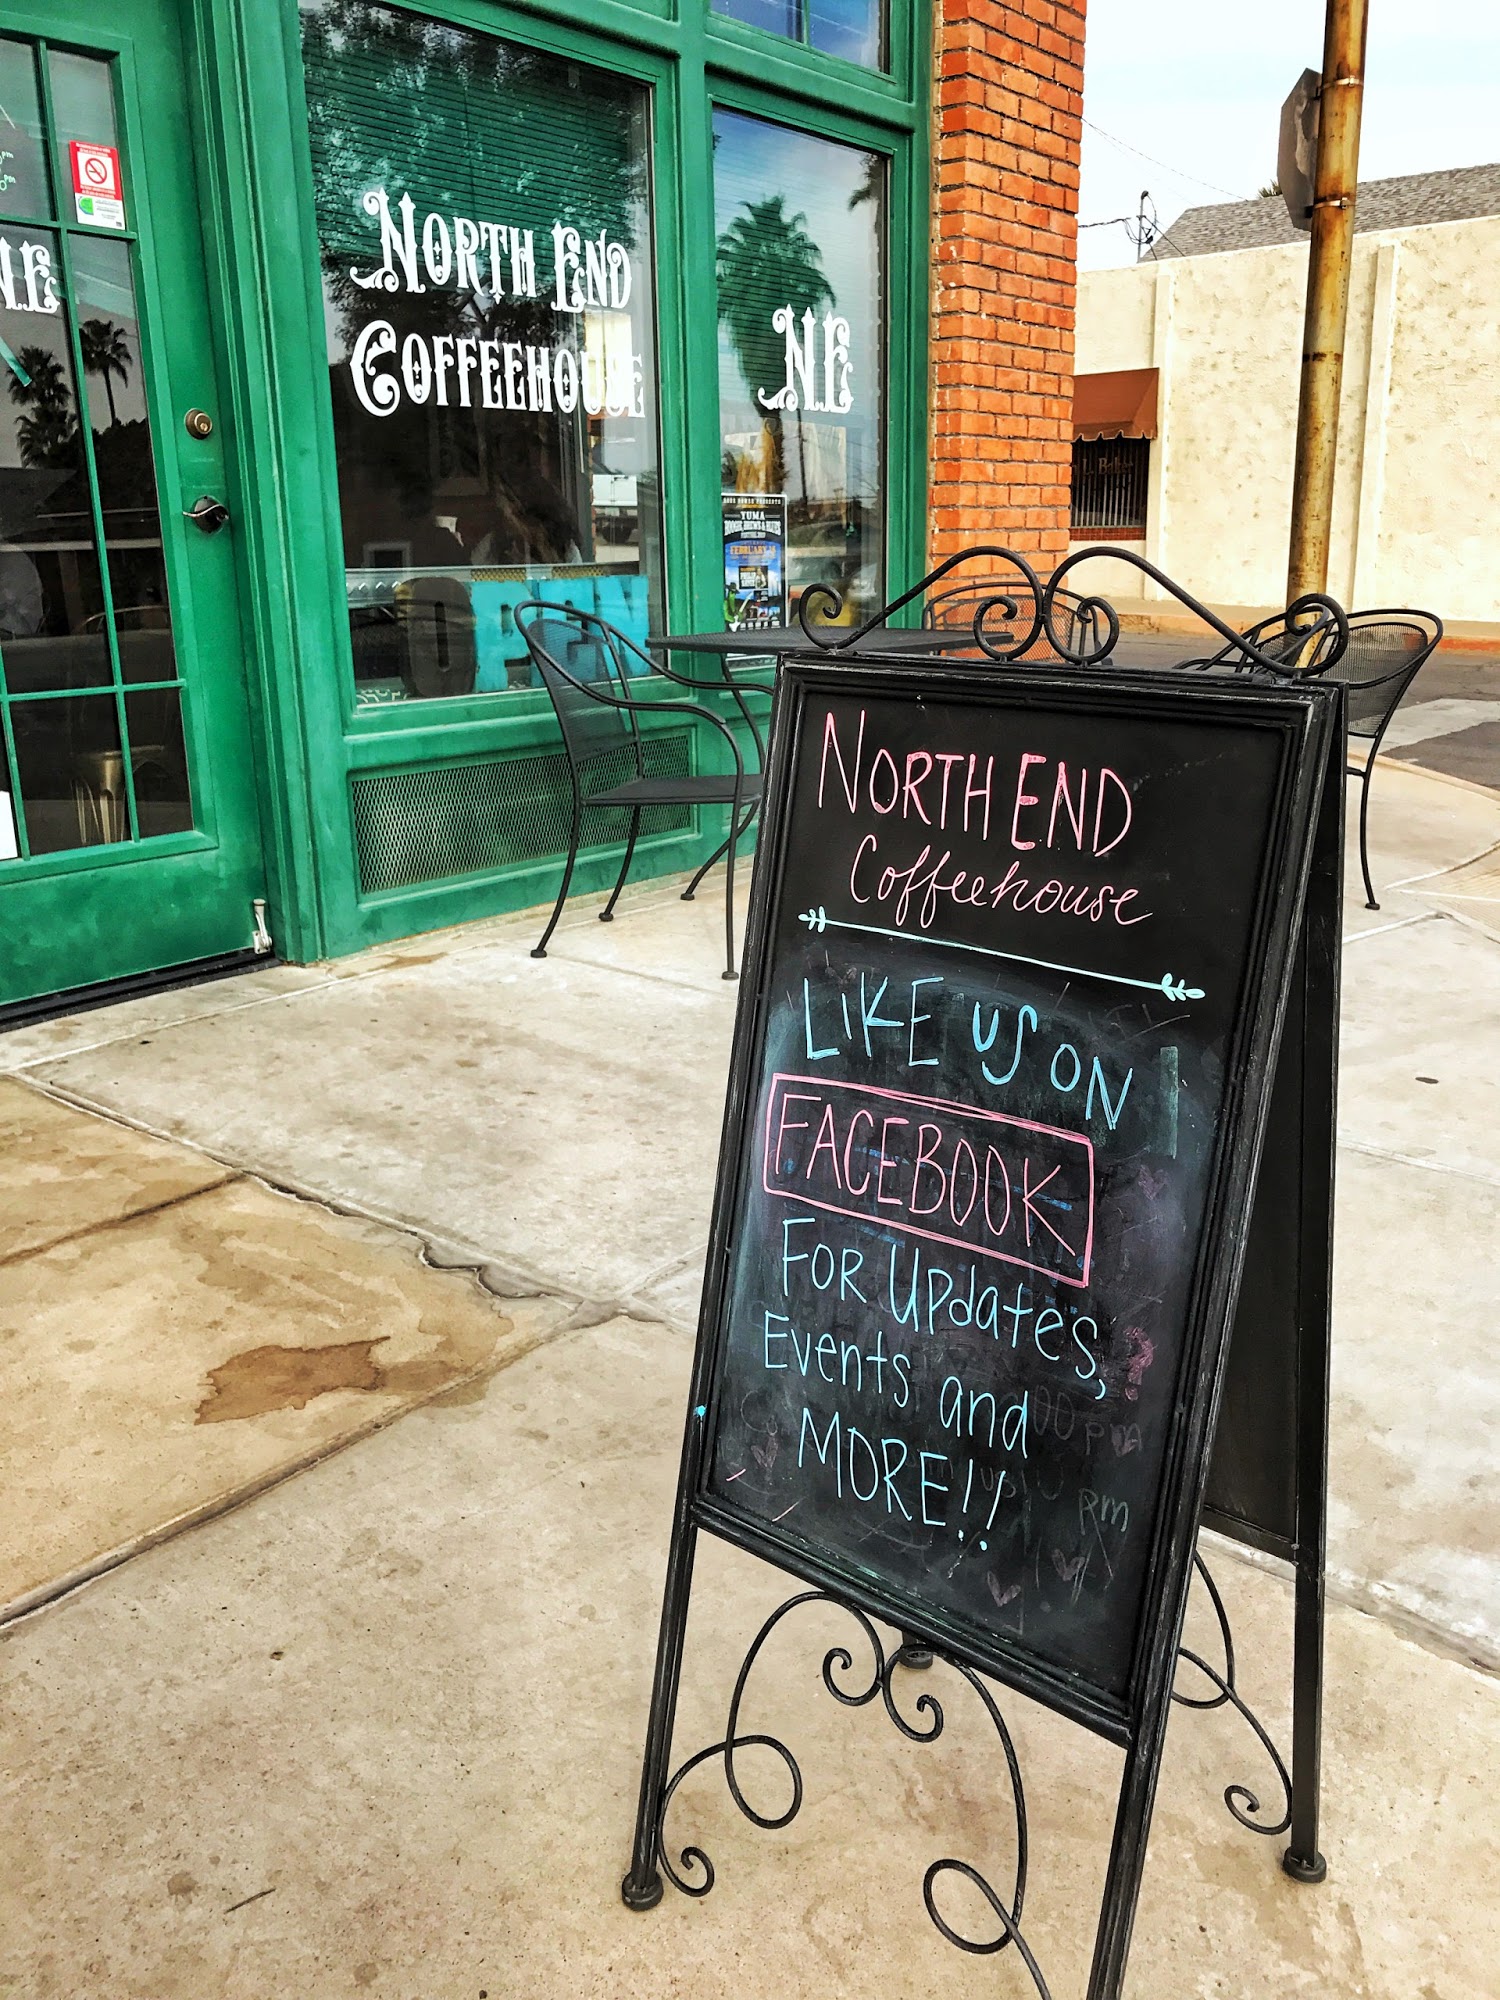 NORTH END
COFFEEHOUSE
N.E
N.E
OPEN
YUMA
FEBRUARY
NORTH END
Coffeehouse
LIKE US ON
FACEBOOK
FOR UPdates,
Events and
MORE!!
pm